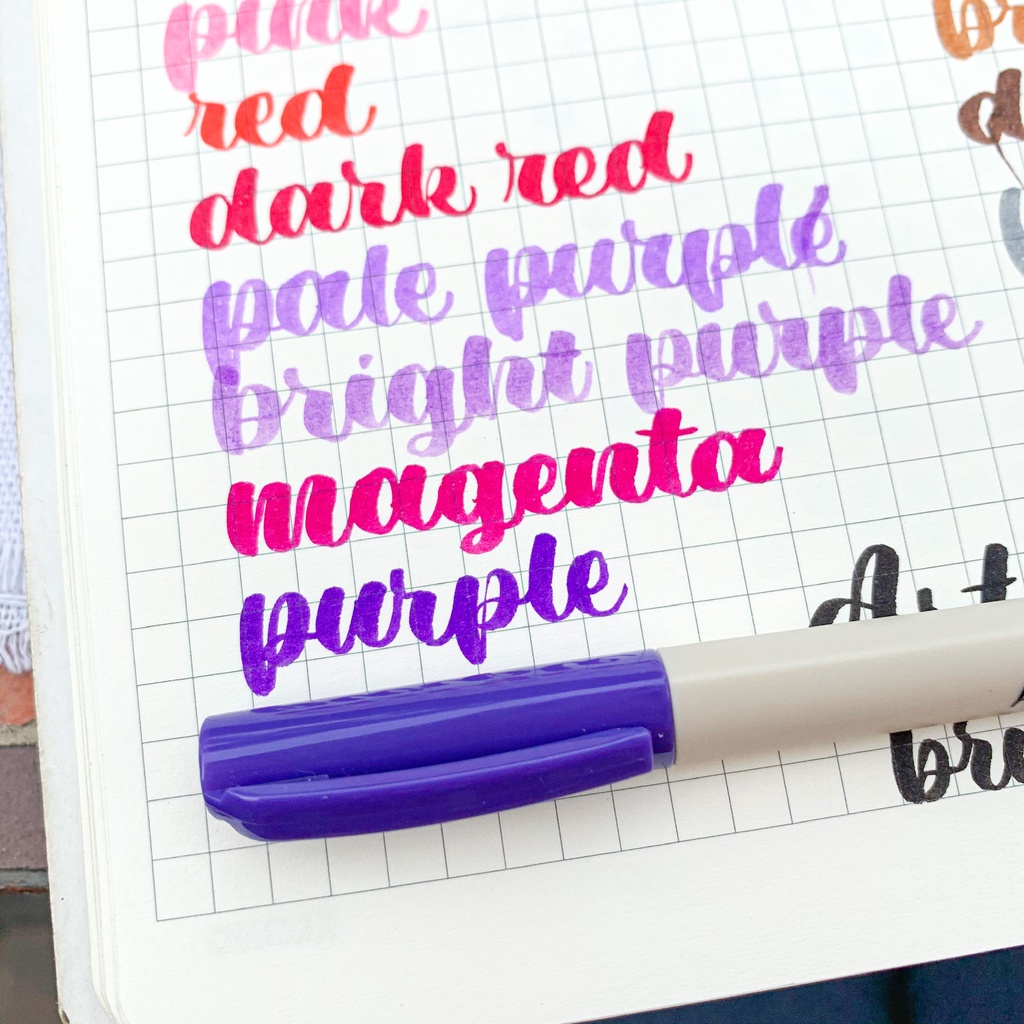 pink
red
dark red
pale purple
bright purple
magenta
purple